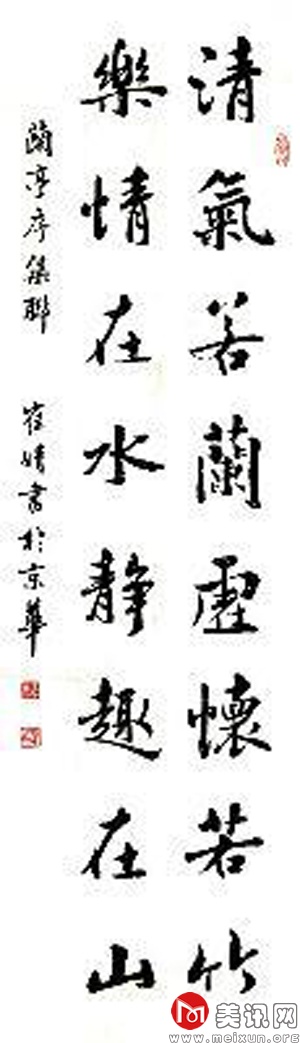 清氣若蘭虛懷若竹
樂情在水靜趣在山
蘭亭序集聯 崔婧書於京華
美讯网
www.meixun.org